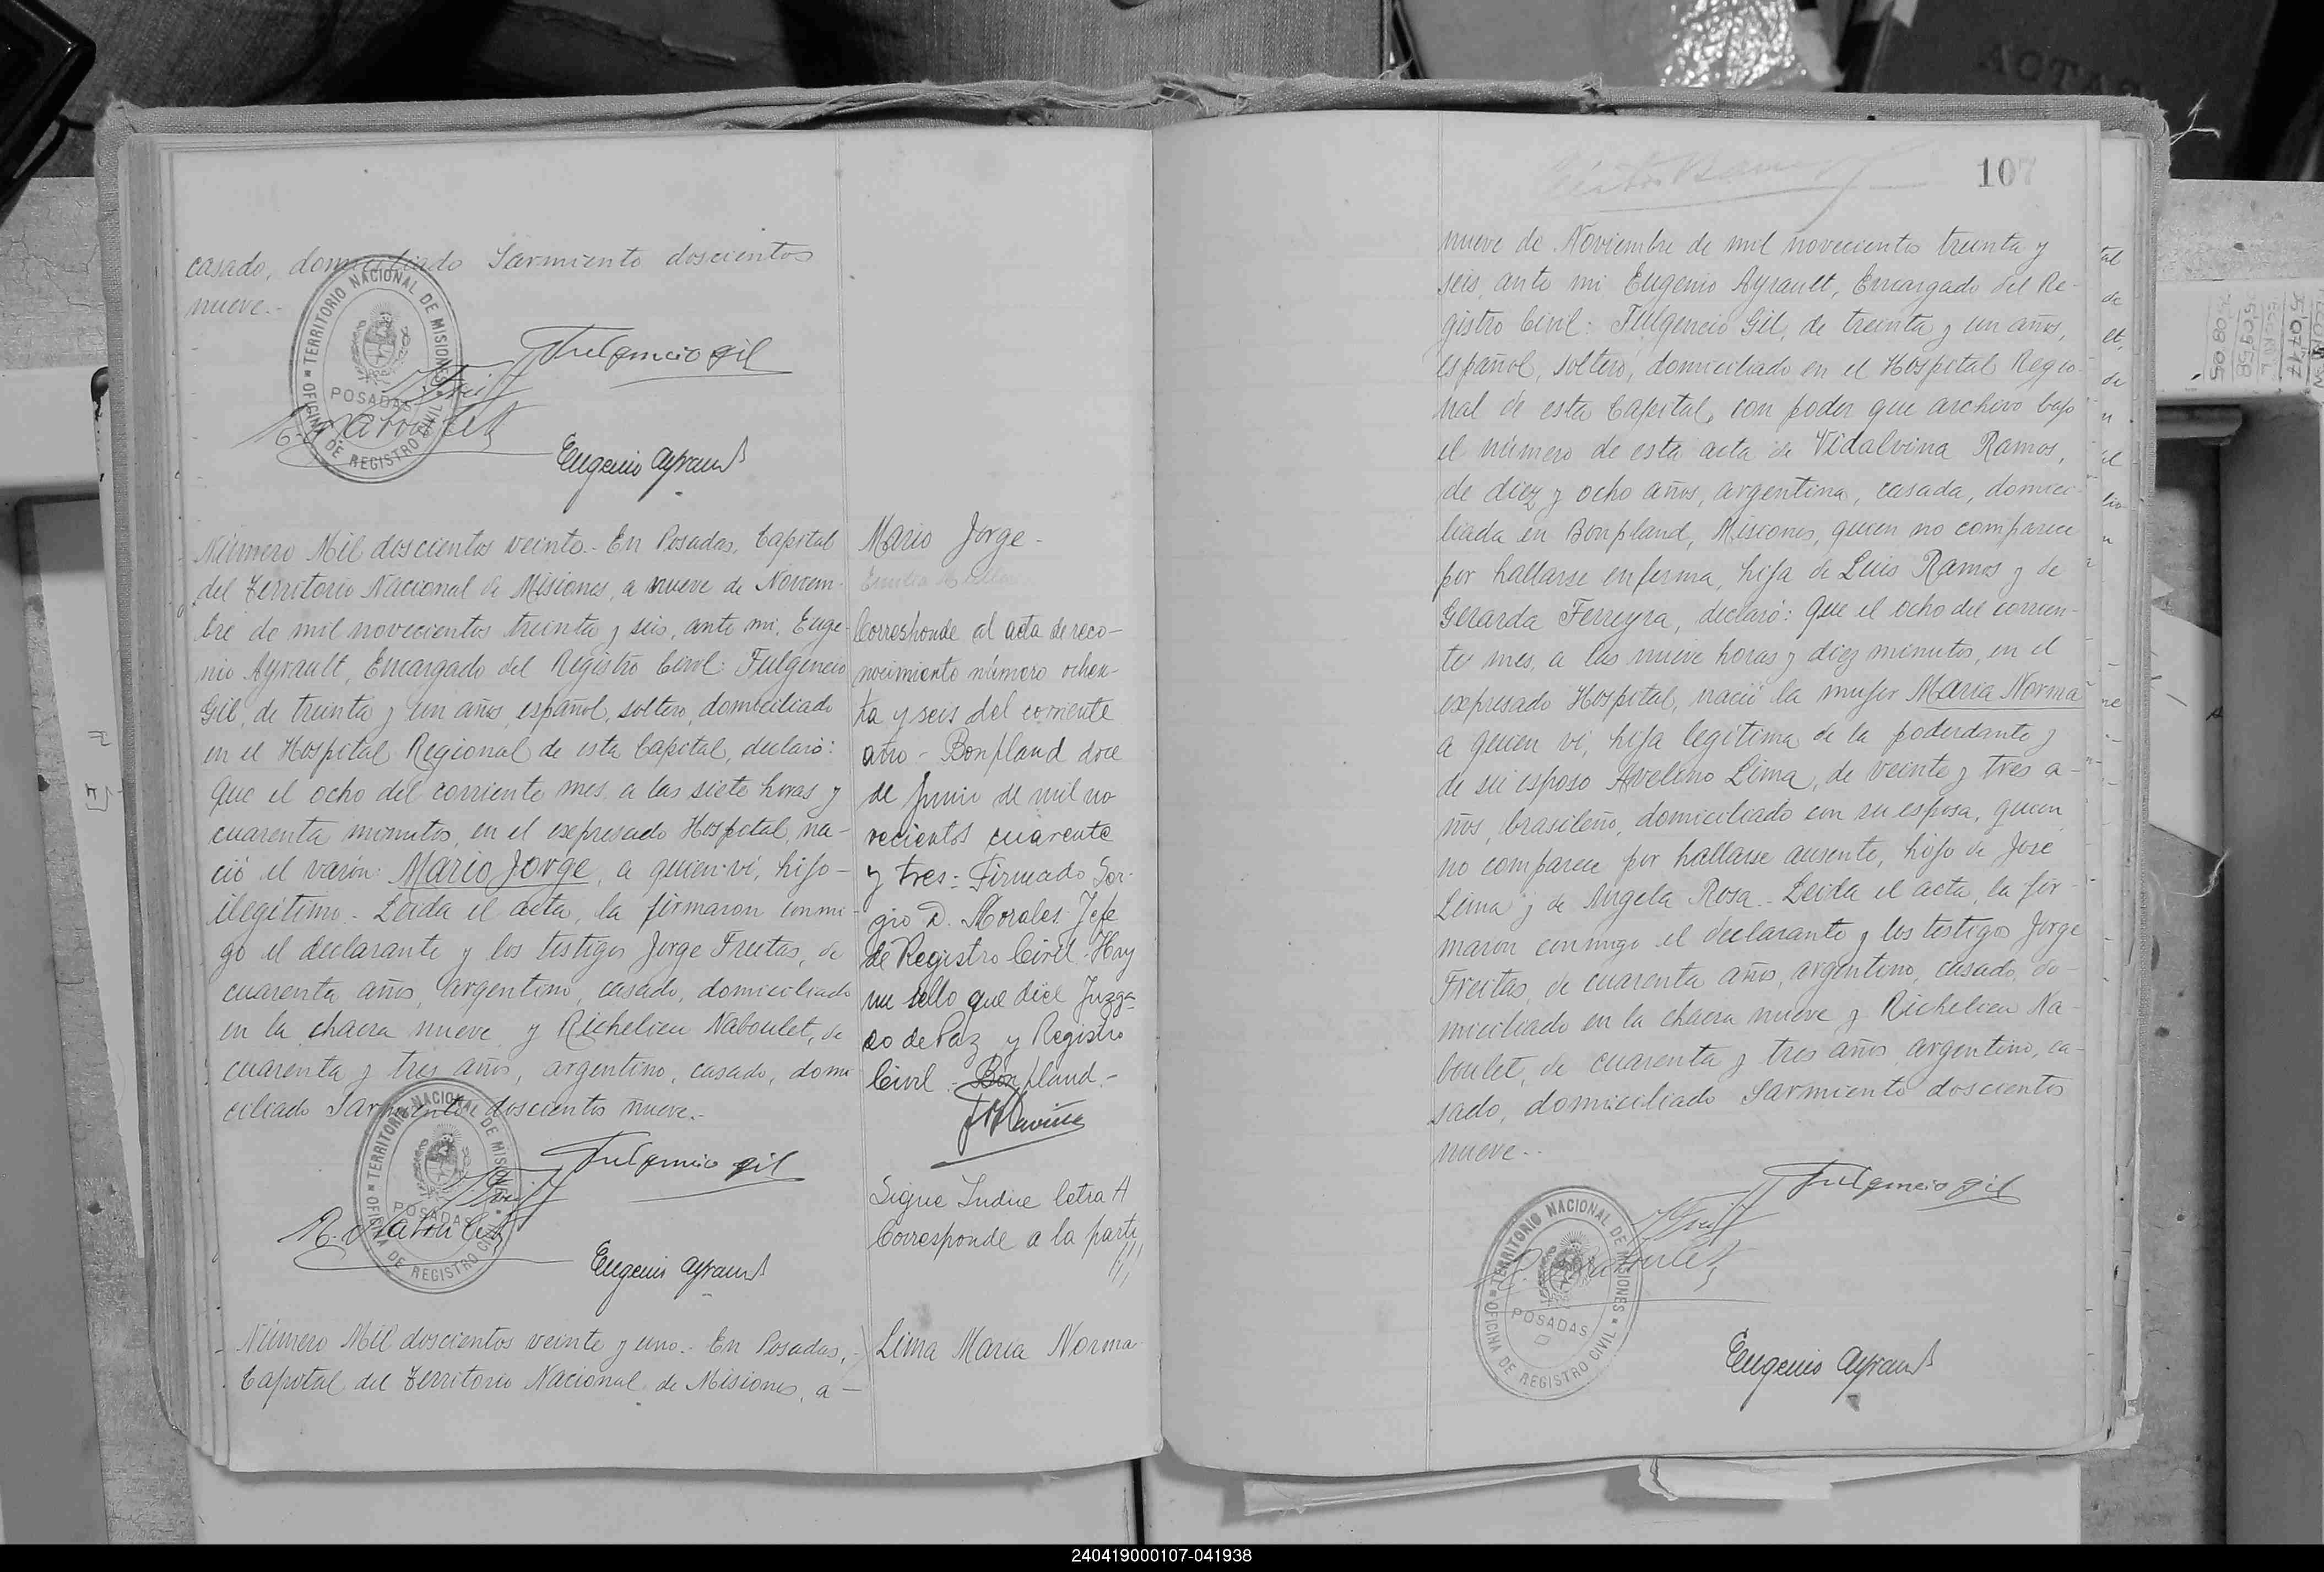 casado, domiciliado Sarmiento doscientos
nueve.-
OFICINA DE REGISTRO CIVIL
TERRITORIO NACIONAL DE MISIONES
POSADAS
Fulgencio Gil
Eugenio Ayrault
Número Mil doscientos veinte.- En Posadas, Capital
del Territorio Nacional de Misiones, a nueve de Noviem-
bre de mil novecientos treinta y seis, ante mi, Euge-
nio Ayrault, Encargado del Registro Civil: Fulgencio
Gil, de treinta y un años, español, soltero, domiciliado
en el Hospital Regional de esta Capital, declaró:
Que el ocho del corriente mes, a las siete horas y
cuarenta minutos, en el expresado Hospital, na-
ció el varón: Mario Jorge, a quien ví, hijo-
ilegítimo.- Leída el acta, la firmaron conmi-
go el declarante y los testigos Jorge Freitas, de
cuarenta años, argentino, casado, domiciliado
en la chacra nueve y Richelieu Naboulet, de
cuarenta y tres años, argentino, casado, domi
ciliado Sarmiento doscientos nueve.-
Mario Jorge-
Corresponde al acta de reco-
nocimiento número ochen-
ta y seis del corriente
año - Bonpland doce
de Junio de mil no
vecientos cuarenta
y tres - Firmado Ser-
gio D. Morales Jefe
de Registro Civil - Hay
un sello que dice Juzga-
do de Paz y Registro
Civil - Bonpland.-
Sigue Indice letra A
Corresponde a la parti
///
OFICINA DE REGISTRO CIVIL
TERRITORIO NACIONAL DE MISIONES
POSADAS
Fulgencio Gil
R. Naboulet
Eugenio Ayrault
Número Mil doscientos veinte y uno.- En Posadas,
Capital del Territorio Nacional de Misiones, a-
Lima Maria Norma
107
nueve de Noviembre de mil novecientos treinta y
seis, ante mi Eugenio Ayrault, Encargado del Re-
gistro Civil: Fulgencio Gil, de treinta y un años,
español, soltero, domiciliado en el Hospital Regio-
nal de esta Capital, con poder que archivo bajo
el número de esta acta de Vidalvina Ramos,
de diez y ocho años, argentina, casada, domici-
liada en Bonpland, Misiones, quien no comparece
por hallarse enferma, hija de Luis Ramos y de
Gerarda Ferreyra, declaró: Que el ocho del corrien-
te mes, a las nueve horas y diez minutos, en el
expresado Hospital, nació la mujer Maria Norma
a quien ví, hija legítima de la poderdante y
de su esposo Avelino Lima, de veinte y tres a-
ños, brasileño, domiciliado con su esposa, quien
no comparece por hallarse ausente, hijo de José
Lima y de Angela Rosa.- Leída el acta, la fir-
maron conmigo el declarante y los testigos Jorge
Freitas, de cuarenta años, argentino, casado, do-
miciliado en la chacra nueve y Richelieu Na-
boulet, de cuarenta y tres años, argentino, ca-
sado, domiciliado Sarmiento doscientos
nueve.-
OFICINA DE REGISTRO CIVIL
TERRITORIO NACIONAL DE MISIONES
POSADAS
Fulgencio Gil
Eugenio Ayrault
240419000107-041938